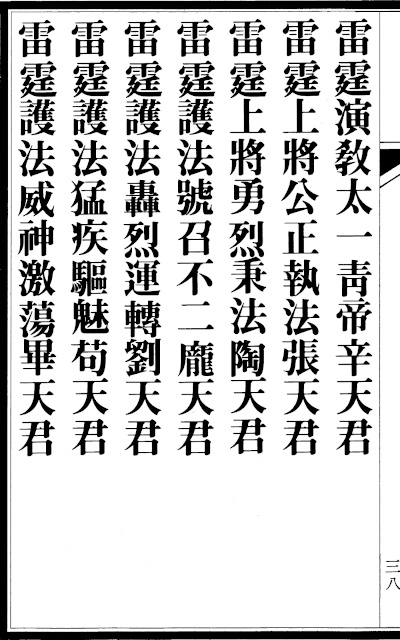 雷霆演敎太一靑帝辛天君
雷霆上將公正執法張天君
雷霆上將勇烈秉法陶天君
雷霆護法號召不二龐天君
雷霆護法轟烈運轉劉天君
雷霆護法猛疾驅魅苟天君
雷霆護法威神激蕩畢天君
三八